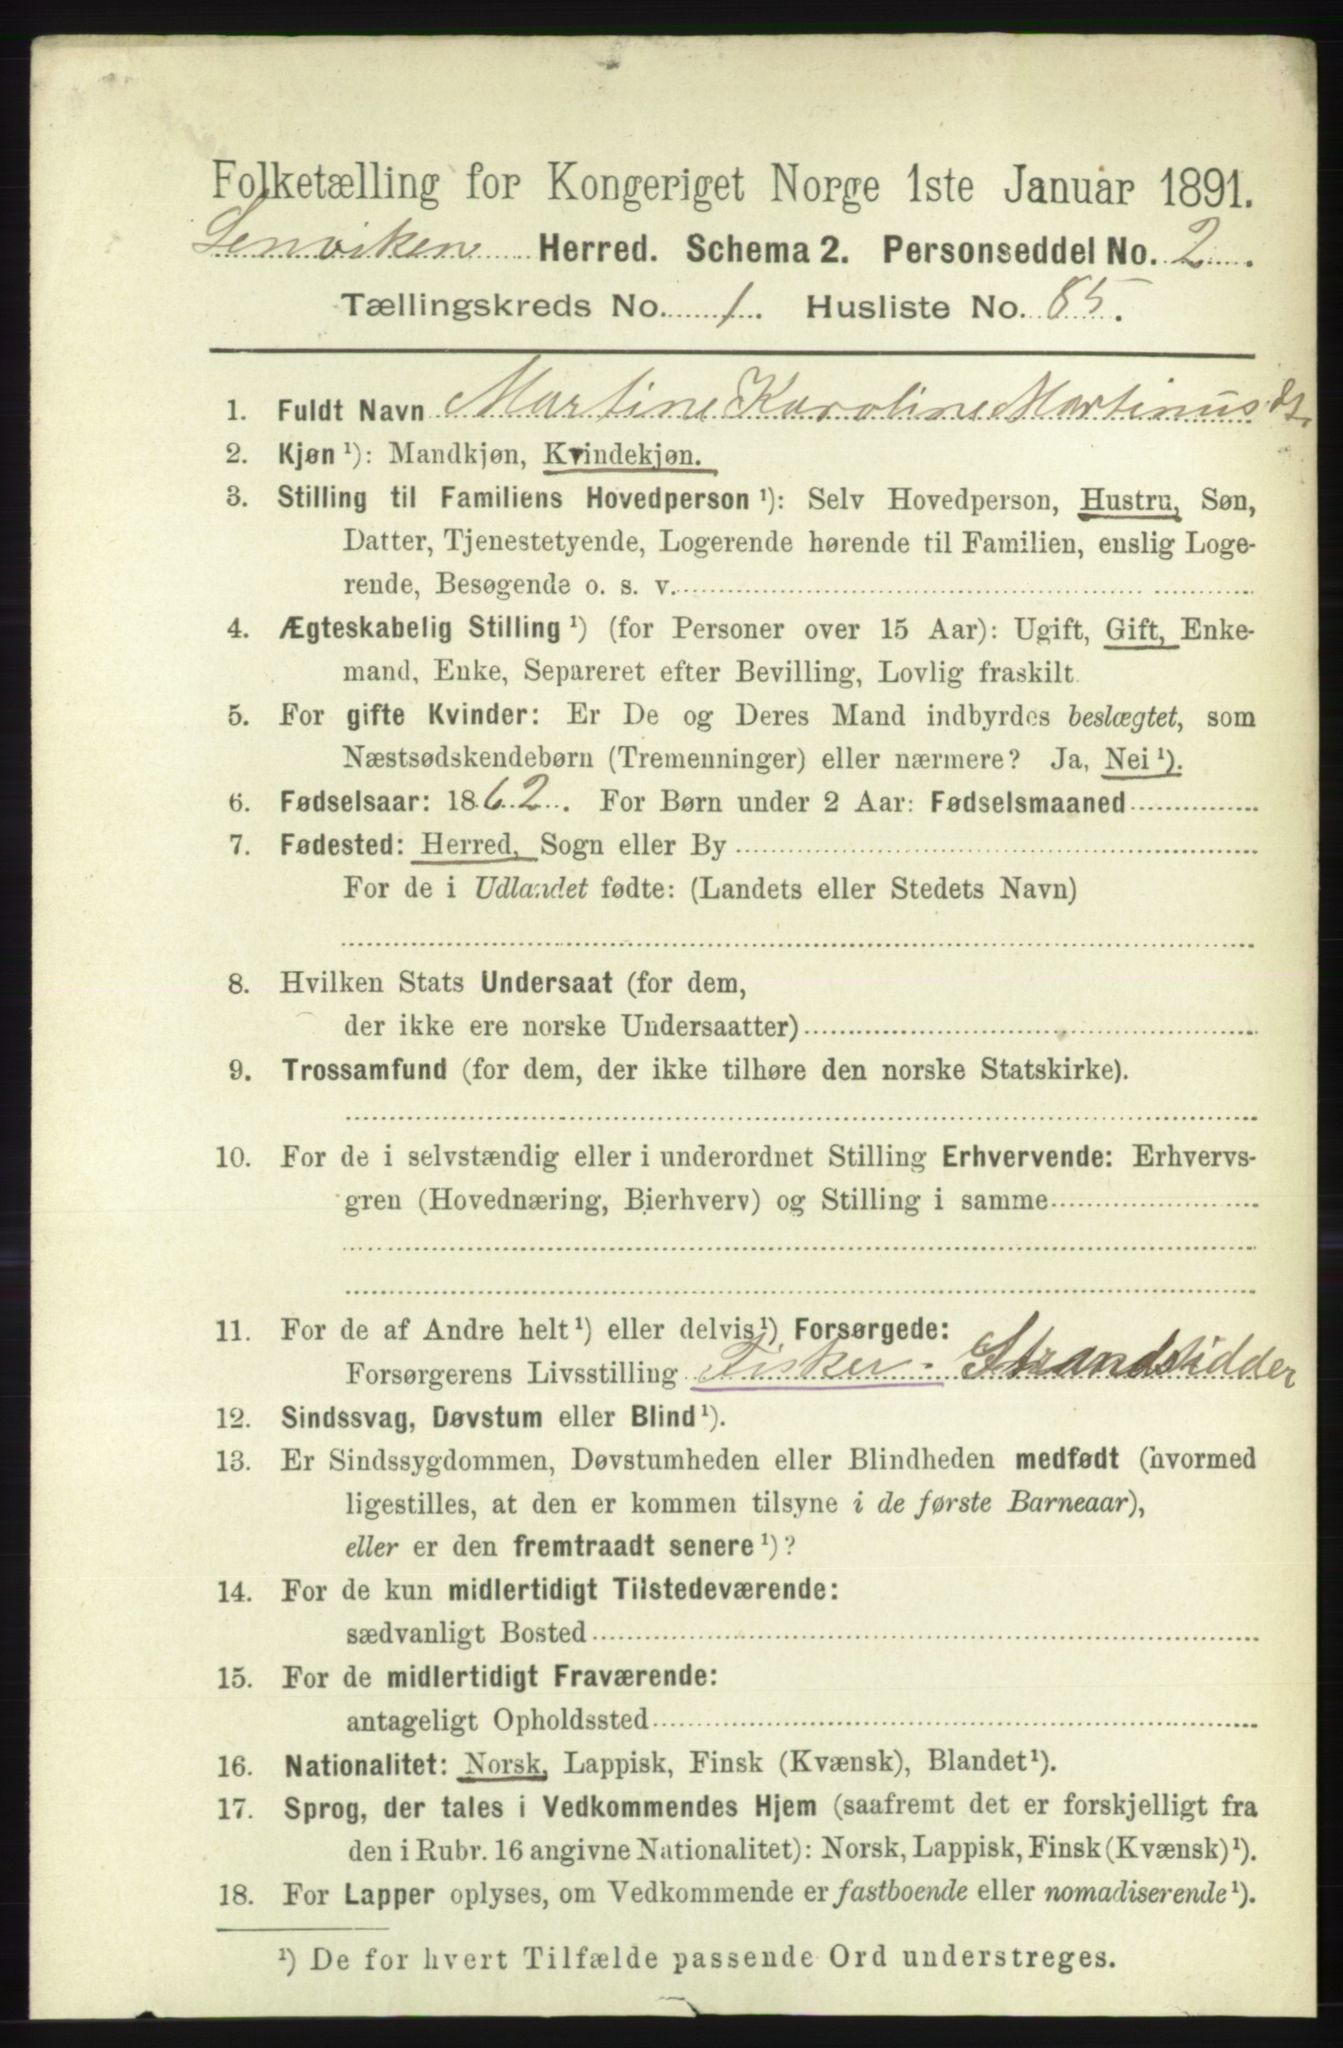 Folketælling for Kongeriget Norge 1ste Januar 1891.
Lenviken Herred. Schema 2. Personseddel No. 2.
Tællingskreds No. 1. Husliste No. 85.
1. Fuldt Navn Martine Karoline Martinusdt.
2. Kjøn ¹): Mandkjøn, Kvindekjøn.
3. Stilling til Familiens Hovedperson ¹): Selv Hovedperson, Hustru, Søn,
Datter, Tjenestetyende, Logerende hørende til Familien, enslig Loge-
rende, Besøgende o. s. v.
4. Ægteskabelig Stilling ¹) (for Personer over 15 Aar): Ugift, Gift, Enke-
mand, Enke, Separeret efter Bevilling, Lovlig fraskilt
5. For gifte Kvinder: Er De og Deres Mand indbyrdes beslægtet, som
Næstsødskendebørn (Tremenninger) eller nærmere? Ja, Nei ¹).
6. Fødselsaar: 1862. For Børn under 2 Aar: Fødselsmaaned
7. Fødested: Herred, Sogn eller By
For de i Udlandet fødte: (Landets eller Stedets Navn)
8. Hvilken Stats Undersaat (for dem,
der ikke ere norske Undersaatter)
9. Trossamfund (for dem, der ikke tilhøre den norske Statskirke).
10. For de i selvstændig eller i underordnet Stilling Erhvervende: Erhvervs-
gren (Hovednæring, Bierhverv) og Stilling i samme
11. For de af Andre helt ¹) eller delvis ¹) Forsørgede:
Forsørgerens Livsstilling Fisker. Strandsidder
12. Sindssvag, Døvstum eller Blind ¹).
13. Er Sindssygdommen, Døvstumheden eller Blindheden medfødt (hvormed
ligestilles, at den er kommen tilsyne i de første Barneaar),
eller er den fremtraadt senere ¹)?
14. For de kun midlertidigt Tilstedeværende:
sædvanligt Bosted
15. For de midlertidigt Fraværende:
antageligt Opholdssted
16. Nationalitet: Norsk, Lappisk, Finsk (Kvænsk), Blandet ¹).
17. Sprog, der tales i Vedkommendes Hjem (saafremt det er forskjelligt fra
den i Rubr. 16 angivne Nationalitet): Norsk, Lappisk, Finsk (Kvænsk) ¹).
18. For Lapper oplyses, om Vedkommende er fastboende eller nomadiserende ¹).
¹) De for hvert Tilfælde passende Ord understreges.